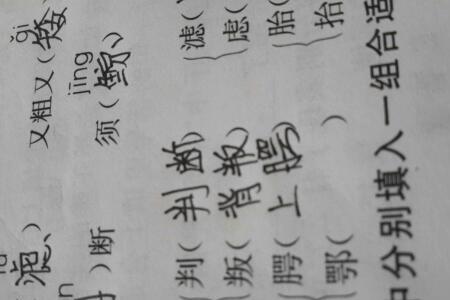 ǎi
滤、 又粗又(矮
jīng
)断 须(鲸、)
判(判断) 滤(
叛(背叛) 虑(
腭(上腭) 胎(
鄂( ) 抬(
分别填入一组合适